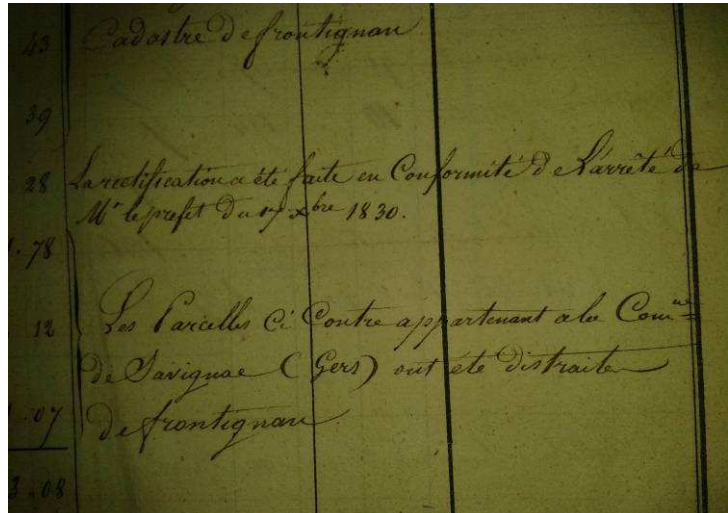 43 Cadastre de frontignan
39
28 La rectification a été faite en Conformité de L'arrêté de
Mr le prefet du 17 xbre 1830.
78
12 Les Parcelles Ci Contre appartenant a la Comune
de Savignac (Gers) ont été distraite
07 de frontignan
3.08